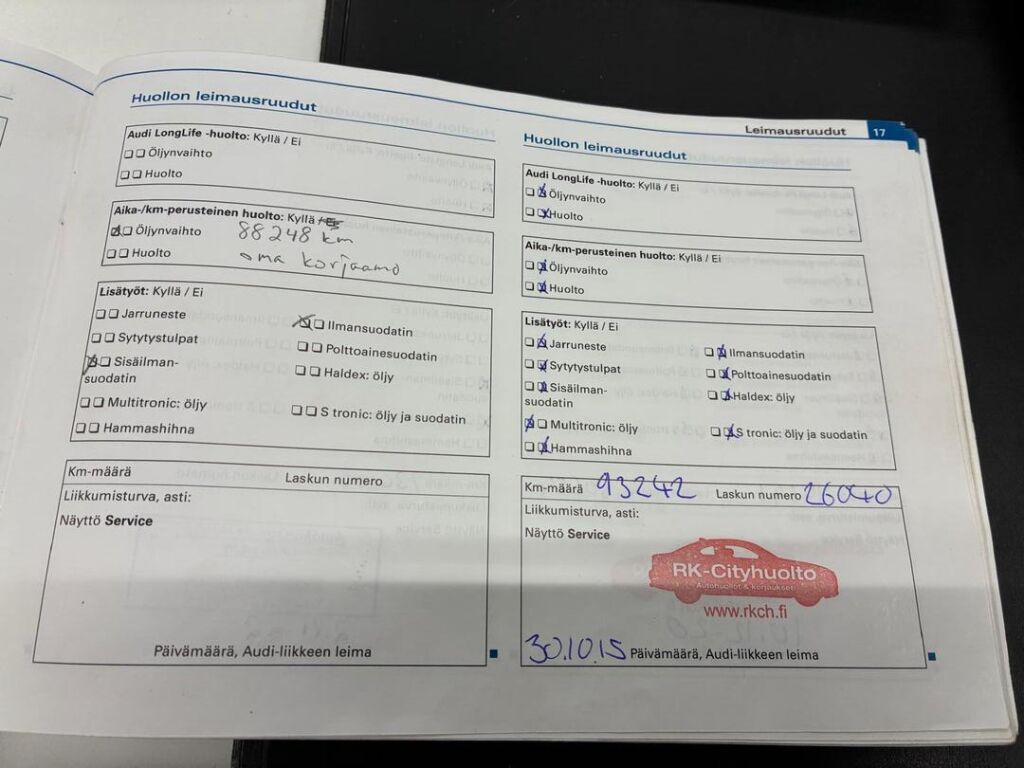 Leimausruudut 17
Huollon leimausruudut
Audi LongLife -huolto: Kyllä / Ei
Öljynvaihto
Huolto
Aika-/km-perusteinen huolto: Kyllä / Ei
Öljynvaihto 88248 km
Huolto oma korjaamo
Lisätyöt: Kyllä / Ei
Jarruneste
Ilmansuodatin
Sytytystulpat
Polttoainesuodatin
Sisäilman-
suodatin
Haldex: öljy
Multitronic: öljy
S tronic: öljy ja suodatin
Hammashihna
Km-määrä Laskun numero
Liikkumisturva, asti:
Näyttö Service
Päivämäärä, Audi-liikkeen leima
Huollon leimausruudut
Audi LongLife -huolto: Kyllä / Ei
Öljynvaihto
Huolto
Aika-/km-perusteinen huolto: Kyllä / Ei
Öljynvaihto
Huolto
Lisätyöt: Kyllä / Ei
Jarruneste
Ilmansuodatin
Sytytystulpat
Polttoainesuodatin
Sisäilman-
suodatin
Haldex: öljy
Multitronic: öljy
S tronic: öljy ja suodatin
Hammashihna
Km-määrä 93242 Laskun numero 26040
Liikkumisturva, asti:
Näyttö Service
RK-Cityhuolto
Autohuollot & korjaukset
www.rkch.fi
30.10.15 Päivämäärä, Audi-liikkeen leima